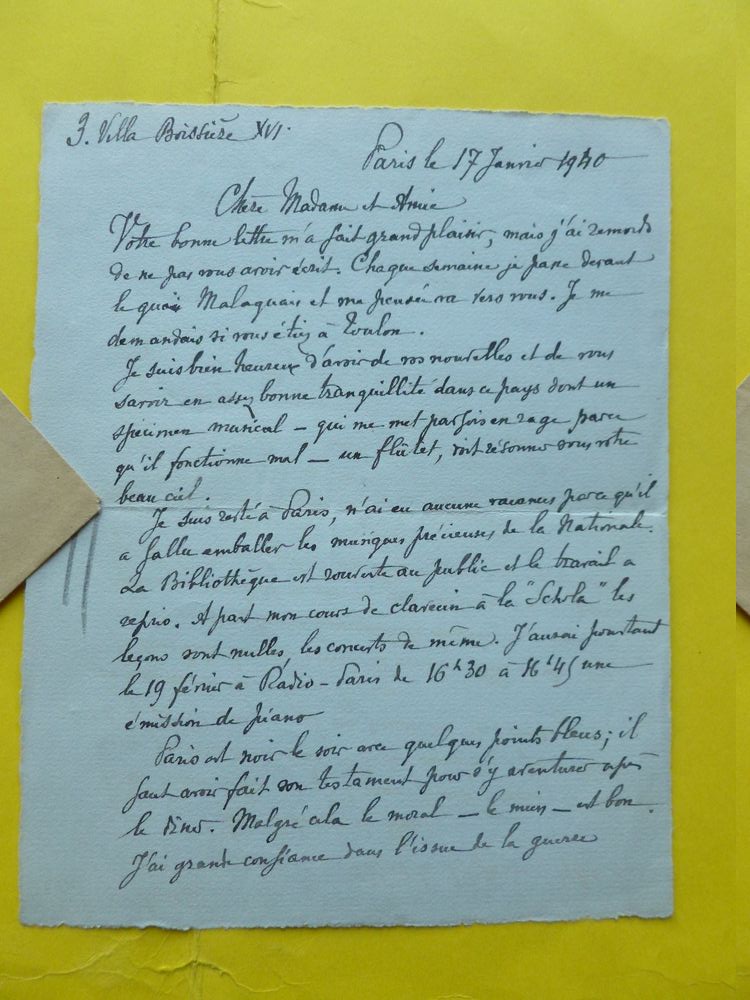 3. Villa Boissière XVI.
Paris le 17 Janvier 1940
Chère Madame et Amie
Votre bonne lettre m'a fait grand plaisir, mais j'ai remords
de ne pas vous avoir écrit. Chaque semaine je passe devant
le quai Malaquais et ma pensée va vers vous. Je me
demandais si vous étiez à Toulon.
Je suis bien heureux d'avoir de vos nouvelles et de vous
savoir en assez bonne tranquillité dans ce pays dont un
spécimen musical — qui me met parfois en rage parce
qu'il fonctionne mal — un flûtet, doit résonner sous votre
beau ciel.
Je suis resté à Paris, n'ai eu aucunes vacances parce qu'il
a fallu emballer les musiques précieuses de la Nationale.
La Bibliothèque est rouverte au public et le travail a
repris. A part mon cours de clavecin à la "Schola" les
leçons sont nulles, les concerts de même. J'aurai pourtant
le 19 février à Radio-Paris de 16h30 à 16h45 une
émission de piano
Paris est noir le soir avec quelques points bleus; il
faut avoir fait son testament pour s'y aventurer après
le dîner. Malgré cela le moral — le mien — est bon.
J'ai grande confiance dans l'issue de la guerre